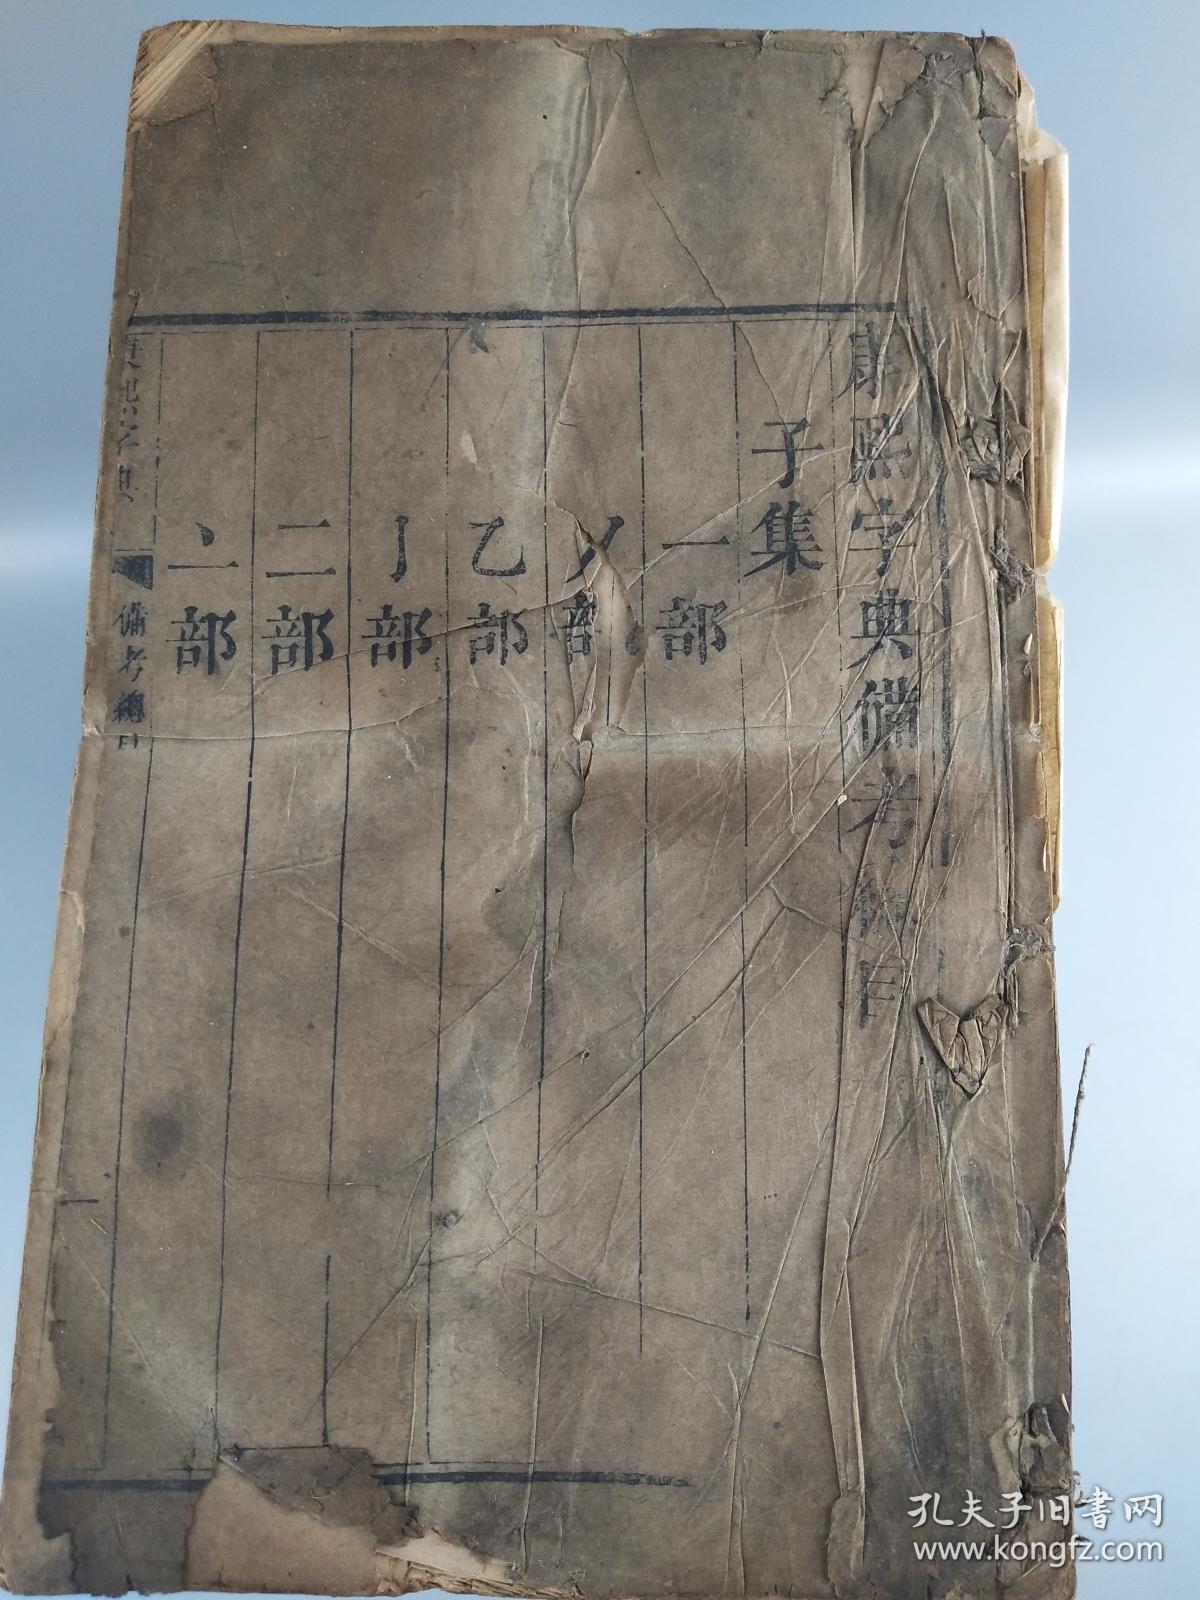 康熙字典備考總目
子集
一部
丿部
乙部
亅部
二部
亠部
康熙字典
備考總目
一
孔夫子旧書网
www.kongfz.com